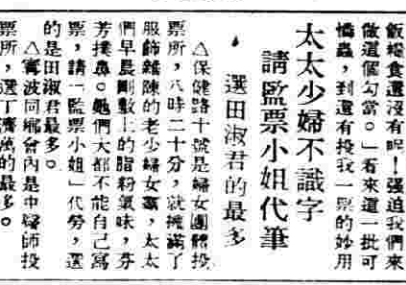 飯總會還沒有呢！强迫我們來
做這個勾當。」看來這一批可
憐蟲，到還有投我一票的妙用
太太少婦不識字
請監票小姐代筆
選田淑君的最多
△保健路十號是婦女團體投
票所，八時二十分，就擁滿了
服飾雜陳的老少婦女羣，太太
們早晨剛敷上的脂粉氣味，芬
芳撲鼻。她們大都不能自己寫
票，請「監票小姐」代勞，選
的是田淑君最多。
△寗波同鄉會內是中醫師投
票所，選丁濟萬的最多。